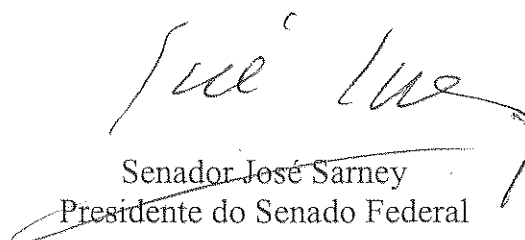 José
Senador José Sarney
Presidente do Senado Federal